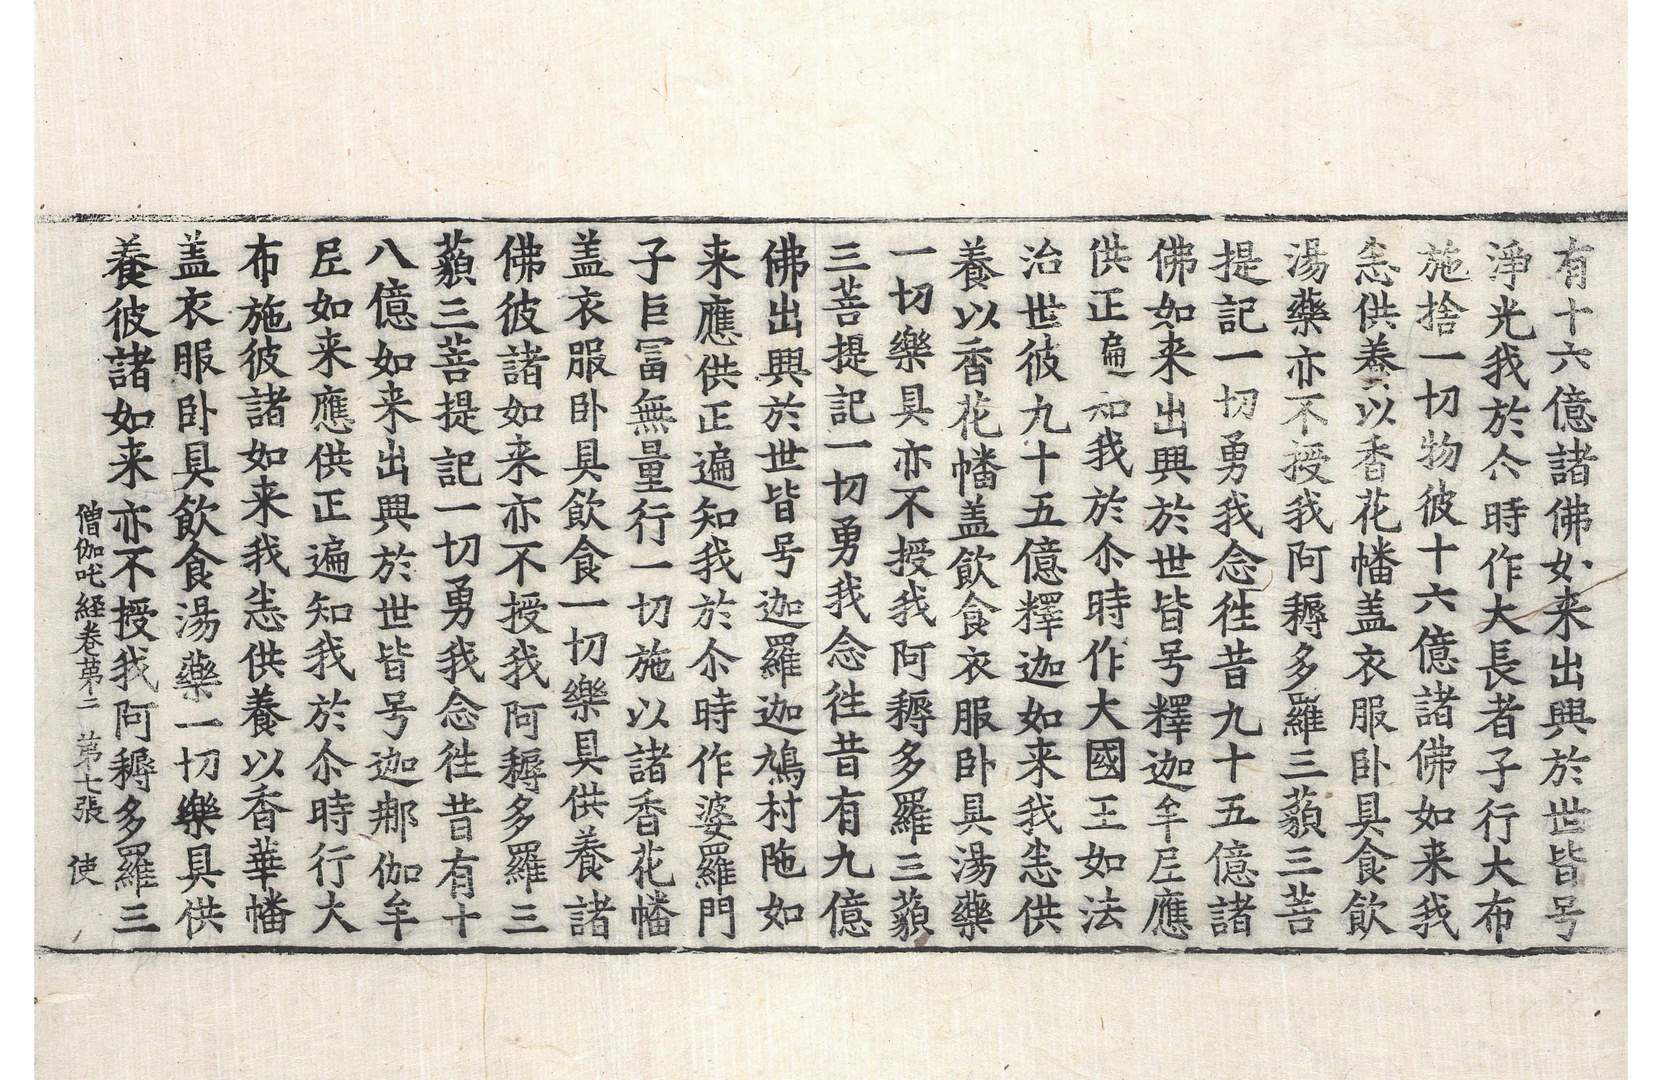 有十六億諸佛如来出興於世皆号
淨光我於尒時作大長者子行大布
施捨一切物彼十六億諸佛如来我
悉供養以香花幡盖衣服卧具食飲
湯藥亦不授我阿耨多羅三藐三菩
提記一切勇我念徃昔九十五億諸
佛如来出興於世皆号釋迦牟尼應
供正遍知我於尒時作大國王如法
治世彼九十五億釋迦如来我悉供
養以香花幡盖飲食衣服卧具湯藥
一切樂具亦不授我阿耨多羅三藐
三菩提記一切勇我念徃昔有九億
佛出興於世皆号迦羅迦鳩村陁如
来應供正遍知我於尒時作婆羅門
子巨冨無量行一切施以諸香花幡
盖衣服卧具飲食一切樂具供養諸
佛彼諸如来亦不授我阿耨多羅三
藐三菩提記一切勇我念徃昔有十
八億如来出興於世皆号迦那伽牟
尼如来應供正遍知我於尒時行大
布施彼諸如来我悉供養以香華幡
盖衣服卧具飲食湯藥一切樂具供
養彼諸如来亦不授我阿耨多羅三
僧伽吒経卷苐二 苐七張 使